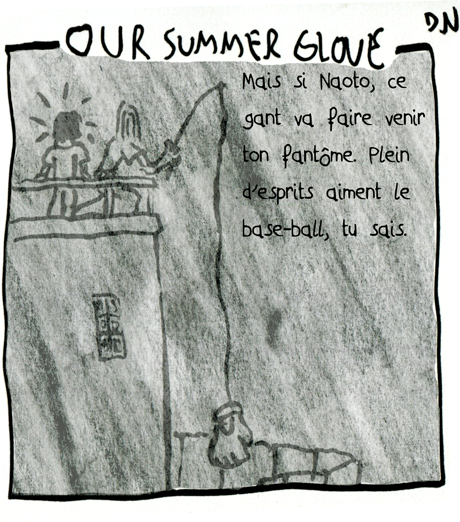 OUR SUMMER GLOVE
DN
Mais si Naoto, ce
gant va faire venir
ton fantôme. Plein
d'esprits aiment le
base-ball, tu sais.